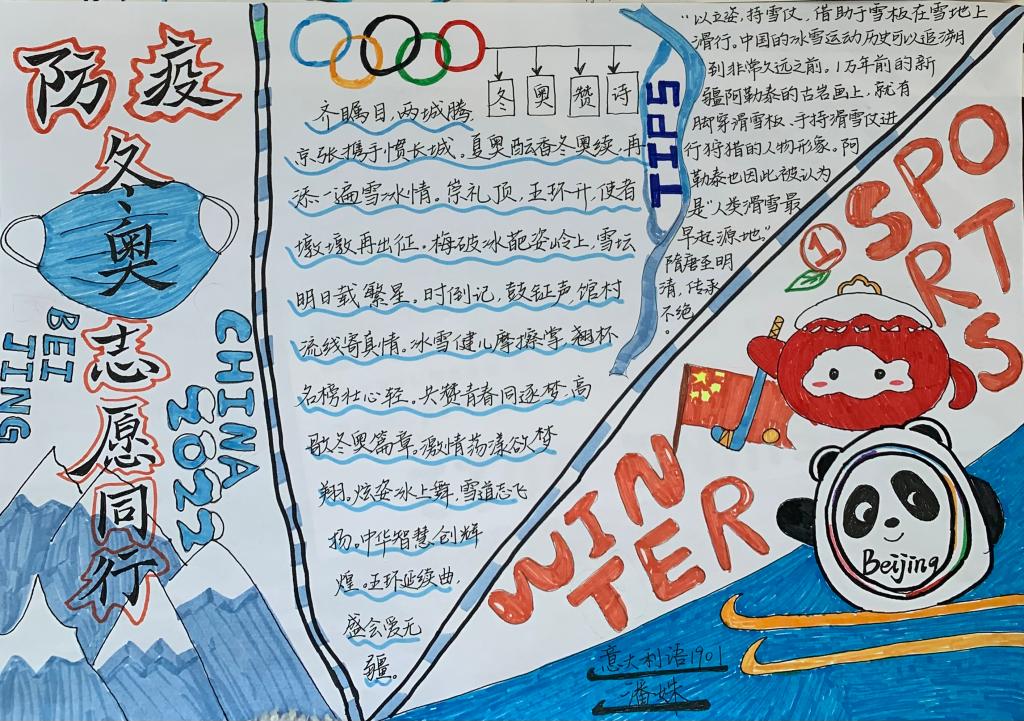 防疫
冬
奥
志
愿
同
行
BEI
JING
CHINA
2022
冬奥赞诗
齐瞩目,两城腾
京张携手惯长城。夏奥酝香冬奥续,再
添一遍雪冰情。崇礼顶,五环升,使者
墩墩再出征。梅破冰葩姿岭上,雪坛
明日载繁星。时倒记,鼓钲声,馆村
流线寄真情。冰雪健儿摩擦掌,翘杯
名榜壮心轻。共赞青春同逐梦,高
歌冬奥篇章。激情荡漾欲梦
翔。炫姿冰上舞,雪道志飞
扬。中华智慧创辉
煌。五环延续曲,
盛会爱无
疆。
TIPS
“以立姿,持雪仗,借助于雪板在雪地上
滑行。中国的冰雪运动历史可以追溯
到非常久远之前。1万年前的新
疆阿勒泰的古岩画上,就有
脚穿滑雪板、手持滑雪仗进
行狩猎的人物形象。阿
勒泰也因此被认为
是“人类滑雪最
早起源地。”
隋唐至明
清,传承
不绝。
1
SPO
RTS
WIN
TER
Beijing
意大利语1901
潘姝